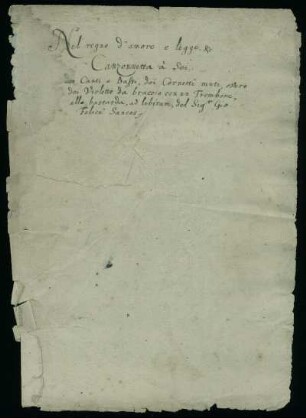 Nel regno d'amore è legge &
Canzonetta à Sei
Canti e Basso, doi Cornetti muti, overo
doi Violette da braccio con un Trombone
alla bastarda, ad libitum, del Sig.re Gio
Felice Sances